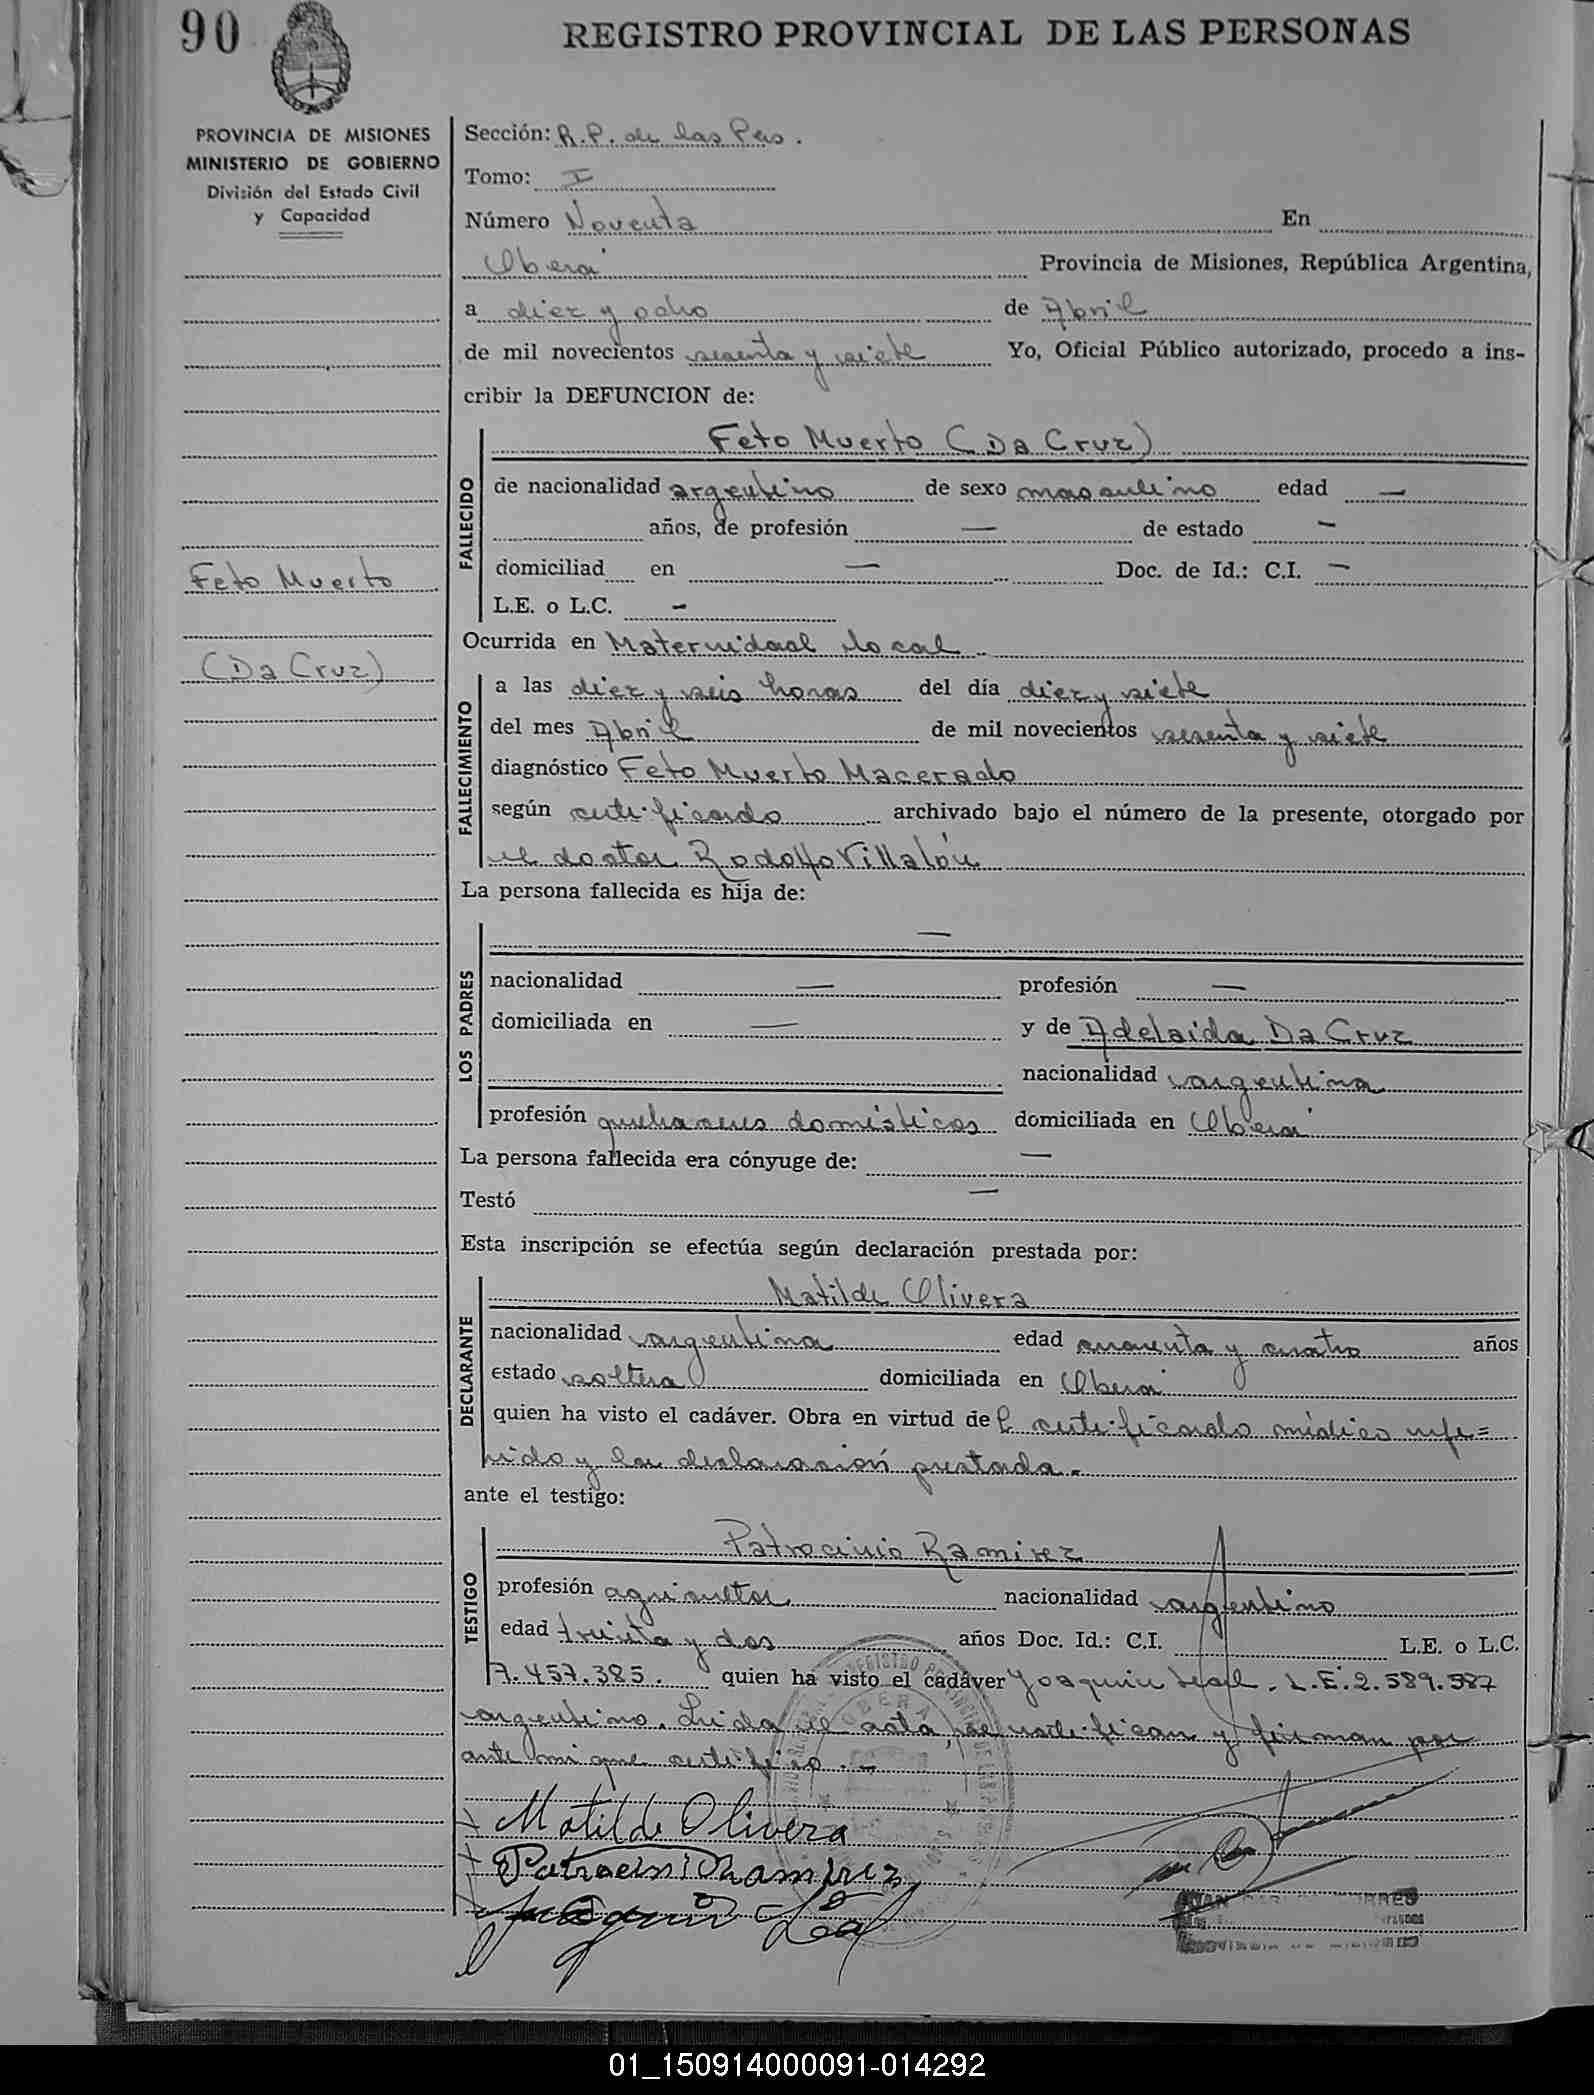 90
REGISTRO PROVINCIAL DE LAS PERSONAS
PROVINCIA DE MISIONES
MINISTERIO DE GOBIERNO
División del Estado Civil
y Capacidad
Feto Muerto
(Da Cruz)
Sección: R.P. de las Pers.
Tomo: I
Número Noventa En
Oberá Provincia de Misiones, República Argentina,
a diez y ocho de Abril
de mil novecientos sesenta y siete Yo, Oficial Público autorizado, procedo a ins-
cribir la DEFUNCION de:
FALLECIDO
Feto Muerto (Da Cruz)
de nacionalidad argentino de sexo masculino edad —
años, de profesión — de estado —
domiciliad en — Doc. de Id.: C.I. —
L.E. o L.C. —
Ocurrida en Maternidad local
FALLECIMIENTO
a las diez y seis horas del día diez y siete
del mes Abril de mil novecientos sesenta y siete
diagnóstico Feto Muerto Macerado
según certificado archivado bajo el número de la presente, otorgado por
el doctor Rodolfo Villalón
La persona fallecida es hija de:
LOS PADRES
—
nacionalidad — profesión —
domiciliada en — y de Adelaida Da Cruz
nacionalidad argentina
profesión quehaceres domésticos domiciliada en Oberá
La persona fallecida era cónyuge de: —
Testó —
Esta inscripción se efectúa según declaración prestada por:
DECLARANTE
Matilde Olivera
nacionalidad argentina edad cuarenta y cuatro años
estado soltera domiciliada en Oberá
quien ha visto el cadáver. Obra en virtud de l certificado médico refe=
rido y la declaración prestada.-
ante el testigo:
TESTIGO
Patrocinio Ramirez
profesión agricultor nacionalidad argentino
edad treinta y dos años Doc. Id.: C.I. L.E. o L.C.
7.457.385. quien ha visto el cadáver Joaquin Leal. L.E. 2.589.587
argentino. Leida el acta, se ratifican y firman por
ante mi que certifico.-
Matilde Olivera
Patrocini Ramirez
Joaquin Leal
OBERA
01_150914000091-014292